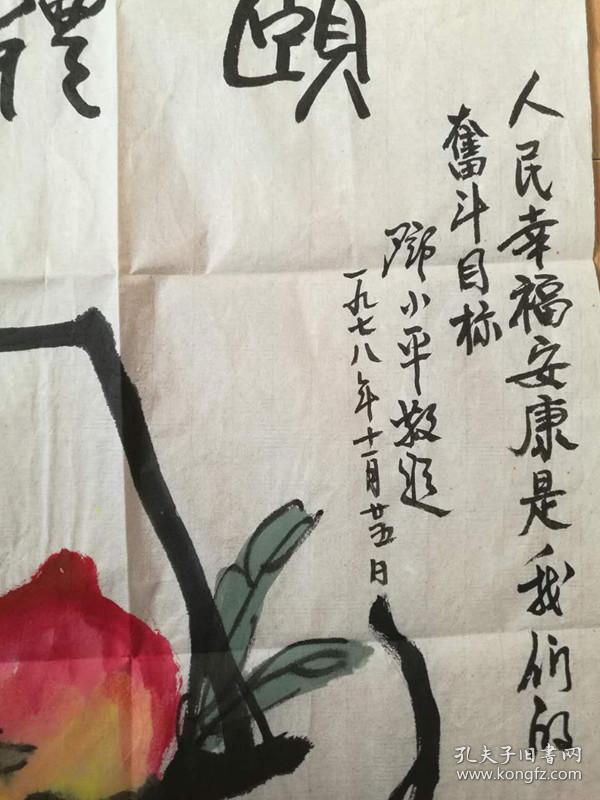 頤
體
人民幸福安康是我们的
奮斗目标
鄧小平敬題
一九七八年十一月廿五日
孔夫子旧書网
www.kongfz.com